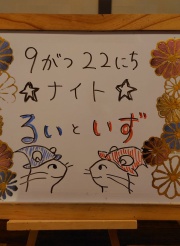 9がつ22にち
☆ナイト☆
るいといず